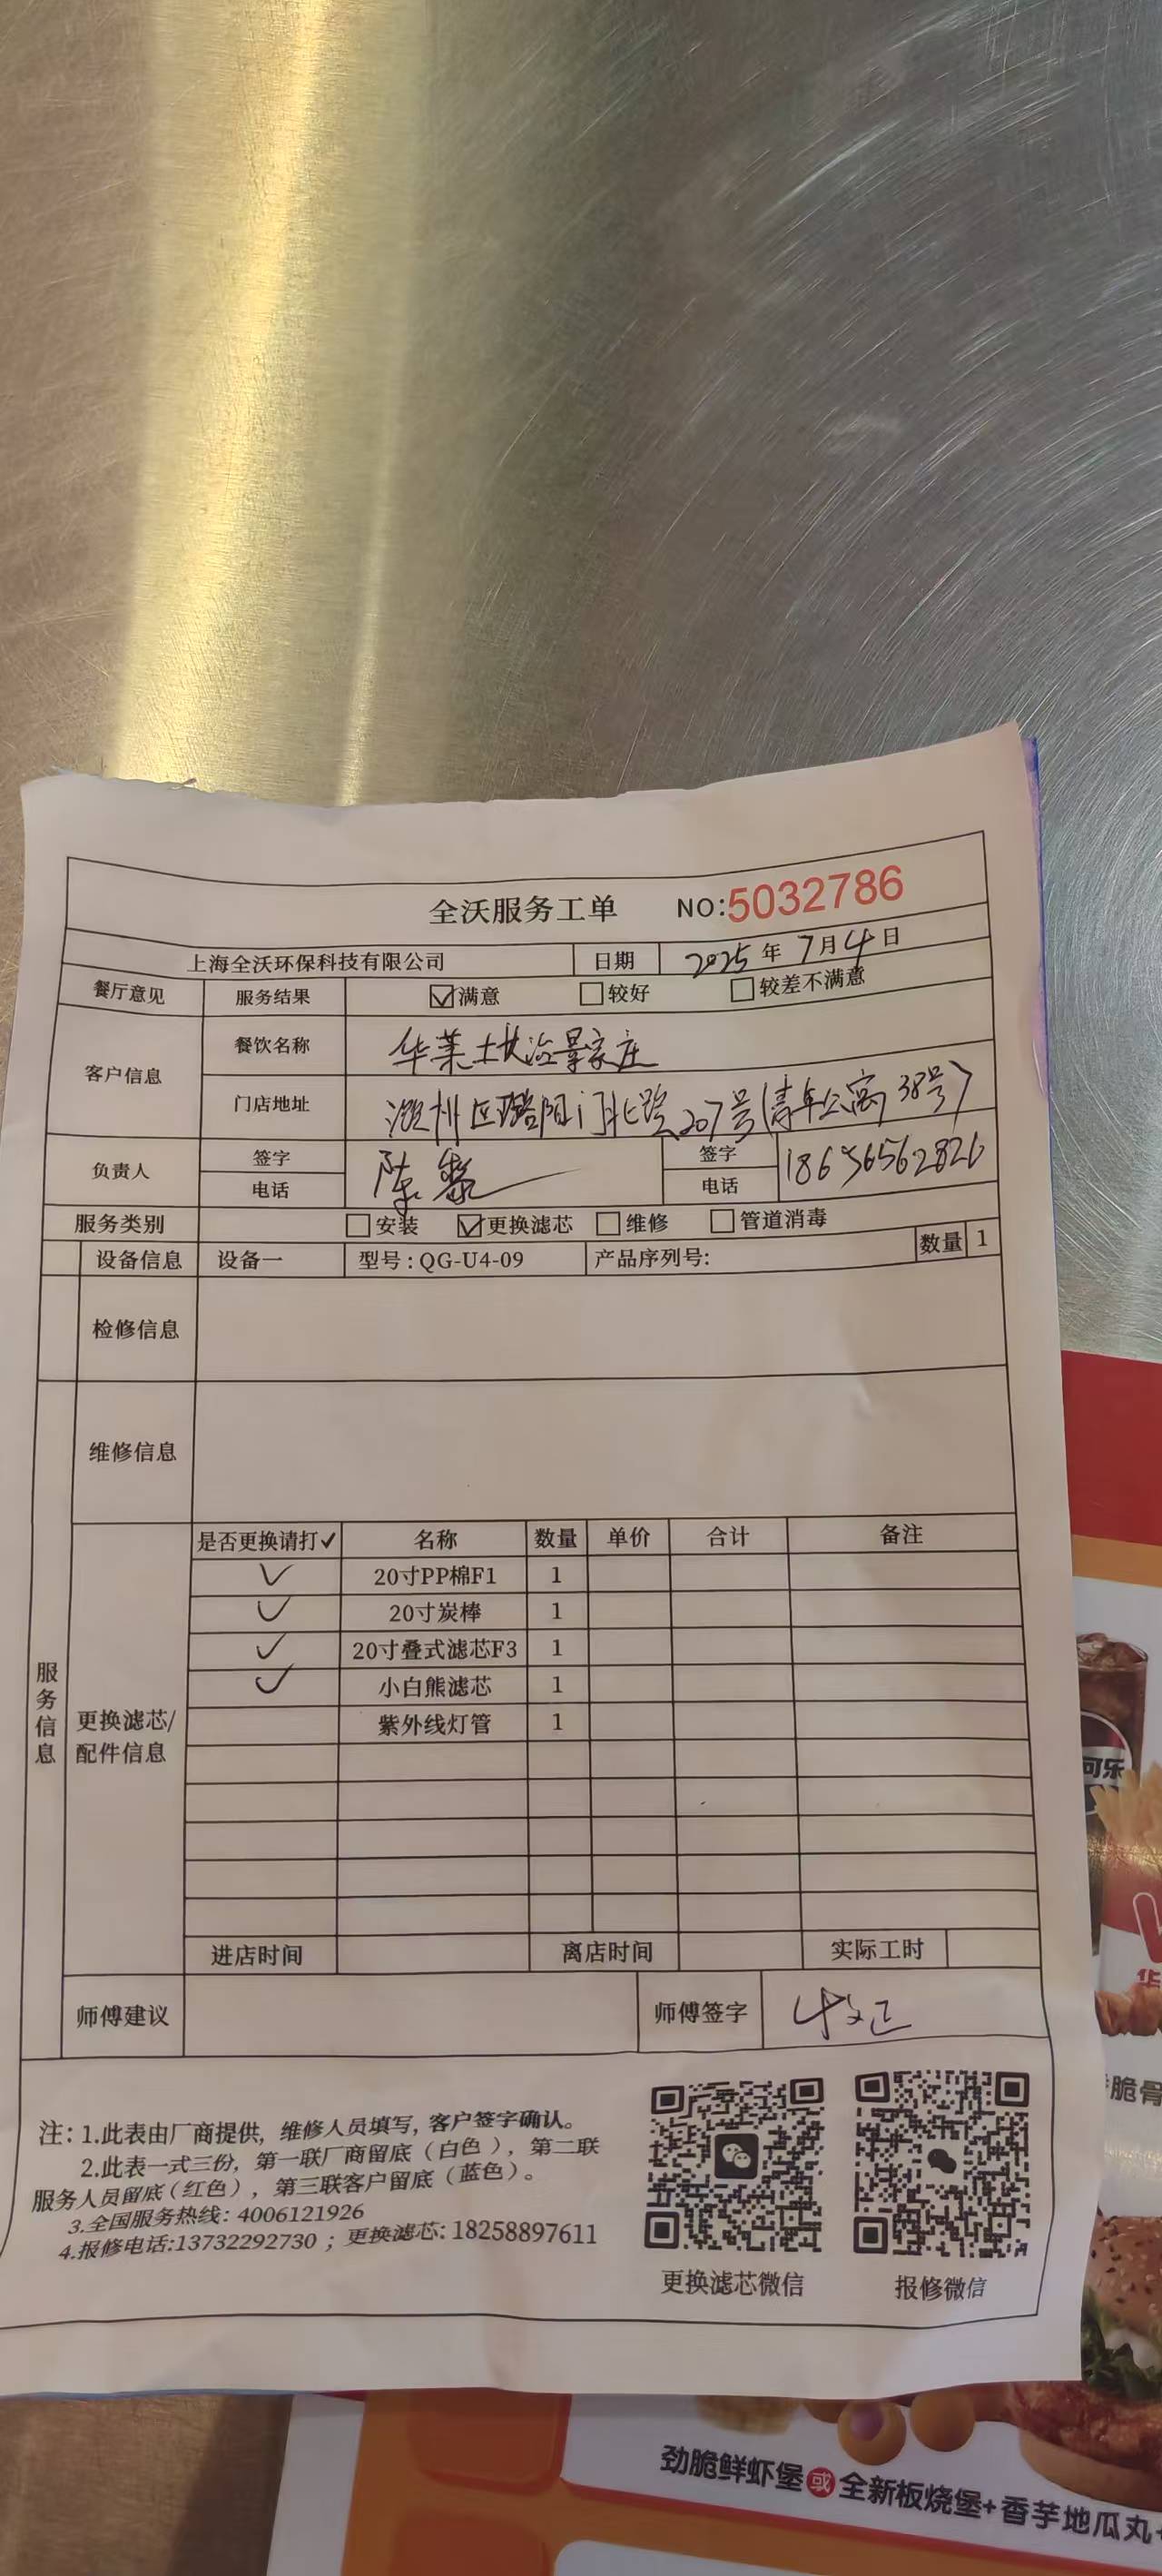 全沃服务工单 NO:5032786
上海全沃环保科技有限公司 日期 2025年7月4日
餐厅意见 服务结果 ☑满意 □较好 □较差不满意
客户信息 餐饮名称 华莱士长治景家庄
门店地址 潞州区潞阳门北路207号(青年公寓38号)
负责人 签字 陈 签字
电话 电话 18636562826
服务类别 □安装 ☑更换滤芯 □维修 □管道消毒
设备信息 设备一 型号:QG-U4-09 产品序列号: 数量 1
检修信息
维修信息
服务信息
更换滤芯/
配件信息
是否更换请打✓ 名称 数量 单价 合计 备注
✓ 20寸PP棉F1 1
✓ 20寸炭棒 1
✓ 20寸叠式滤芯F3 1
✓ 小白熊滤芯 1
紫外线灯管 1
进店时间 离店时间 实际工时
师傅建议 师傅签字
注: 1.此表由厂商提供, 维修人员填写, 客户签字确认。
2.此表一式三份, 第一联厂商留底（白色）, 第二联
服务人员留底（红色）, 第三联客户留底（蓝色）。
3.全国服务热线: 4006121926
4.报修电话:13732292730 ; 更换滤芯: 18258897611
更换滤芯微信 报修微信
可乐
华
脆骨
劲脆鲜虾堡或全新板烧堡+香芋地瓜丸+